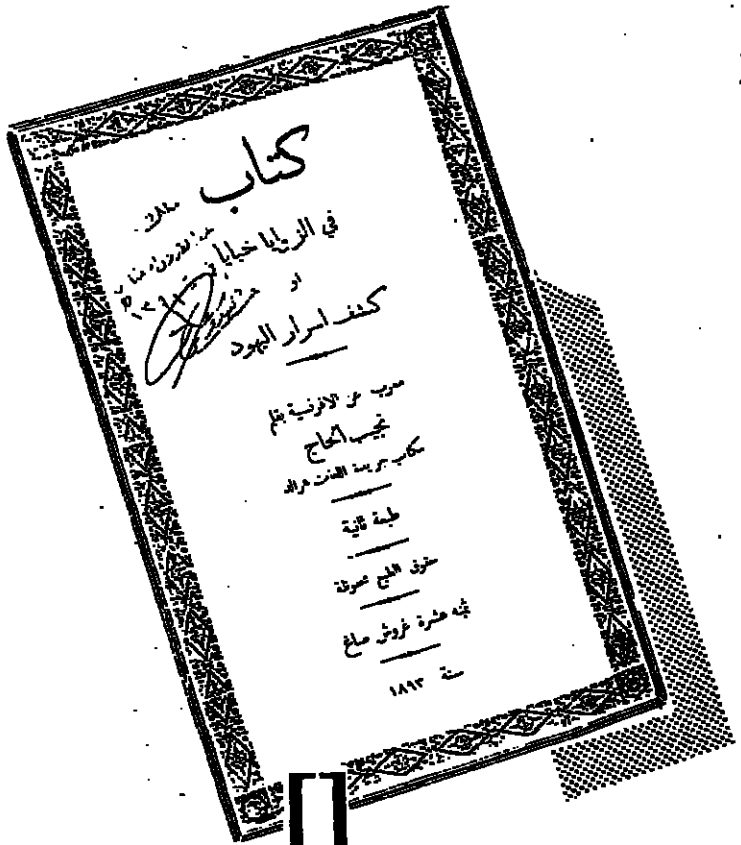 كتاب
في الزوايا خبايا
او
كشف اسرار اليهود
معرب عن الافرنسية بقلم
نجيب الحاج
مكاتب جريدة
طبعة ثانية
حقوق الطبع محفوظة
ثمنه عشرة غروش صاغ
سنة ١٨٩٣